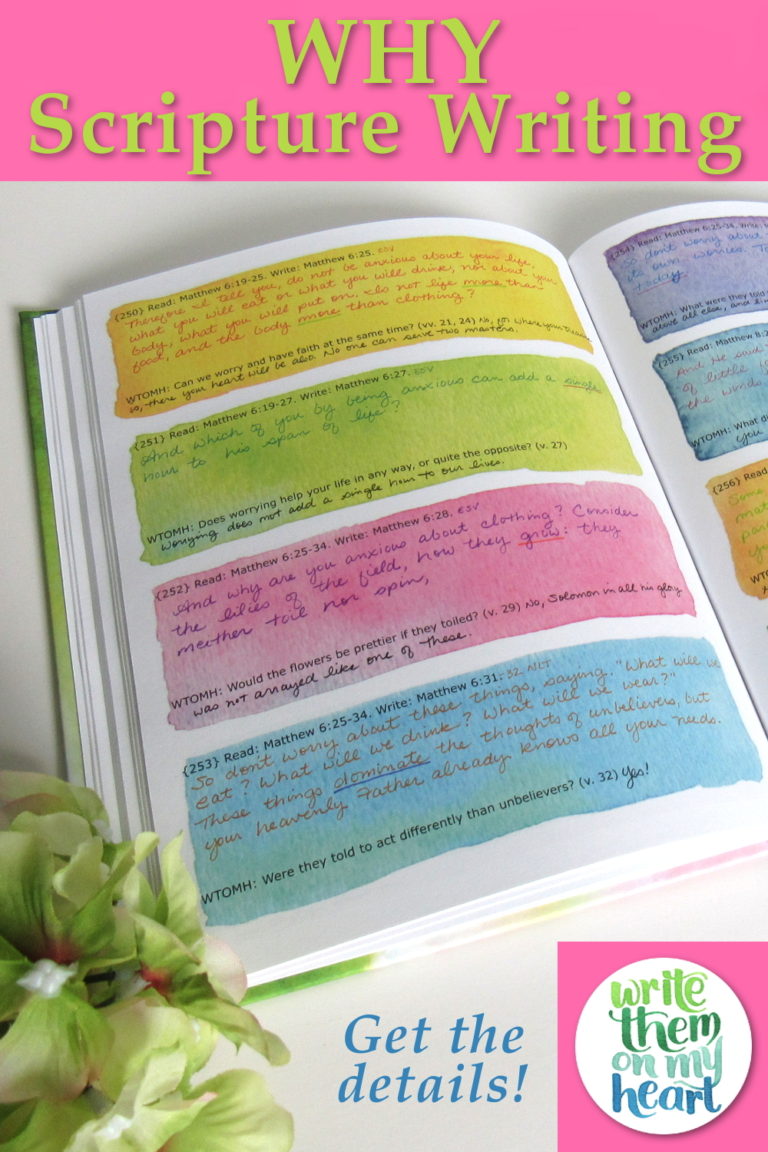 WHY
Scripture Writing
{250} Read: Matthew 6:19-25. Write: Matthew 6:25. ESV
Therefore I tell you, do not be anxious about your life,
what you will eat or what you will drink, nor about your
body, what you will put on. Is not life more than
food, and the body more than clothing?
WTOMH: Can we worry and have faith at the same time? (vv. 21, 24) No, for where your treasure
is, there your heart will be also. No one can serve two masters.
{251} Read: Matthew 6:19-27. Write: Matthew 6:27. ESV
And which of you by being anxious can add a single
hour to his span of life?
WTOMH: Does worrying help your life in any way, or quite the opposite? (v. 27)
Worrying does not add a single hour to our lives.
{252} Read: Matthew 6:25-34. Write: Matthew 6:28. ESV
And why are you anxious about clothing? Consider
the lilies of the field, how they grow: they
neither toil nor spin,
WTOMH: Would the flowers be prettier if they toiled? (v. 29) No, Solomon in all his glory
was not arrayed like one of these.
{253} Read: Matthew 6:25-34. Write: Matthew 6:31-32 NLT
So don't worry about these things, saying, "What will we
eat? What will we drink? What will we wear?"
These things dominate the thoughts of unbelievers, but
your heavenly Father already knows all your needs.
WTOMH: Were they told to act differently than unbelievers? (v. 32) Yes!
{254} Read: Matthew 6:25-34. Write:
So don't worry about
its own worries. To
today.
WTOMH: What were they told
above all else, and
{255} Read: Matthew 8:2
And He said
of little
the
WTOMH: What di
you
{256} Read
Some
mat
par
yo
WTO
Get the
details!
write
them
on my
heart